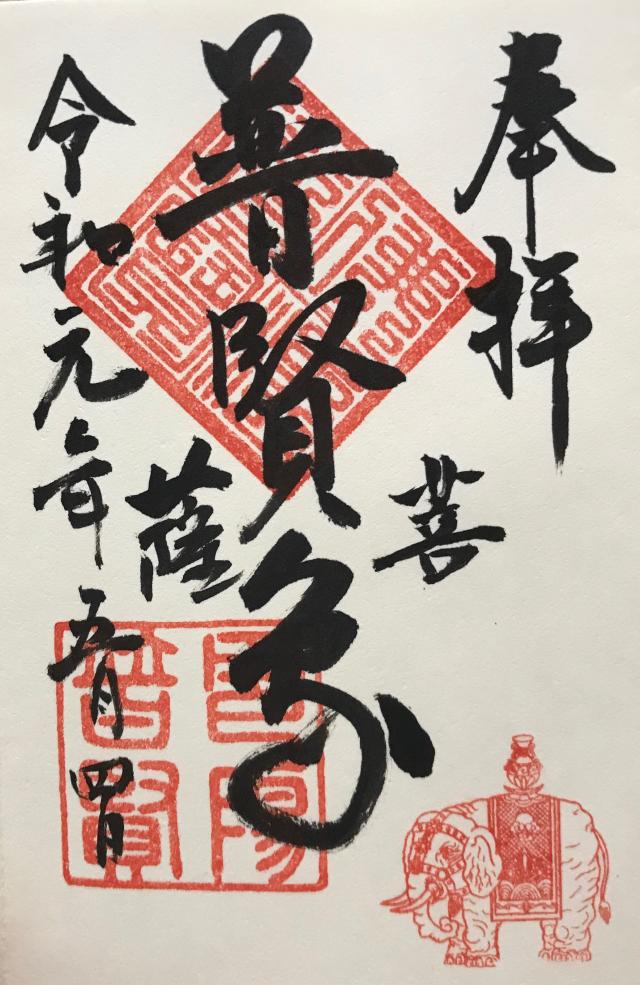 奉拝
菩薩
普賢象
令和元年五月四日
普賢